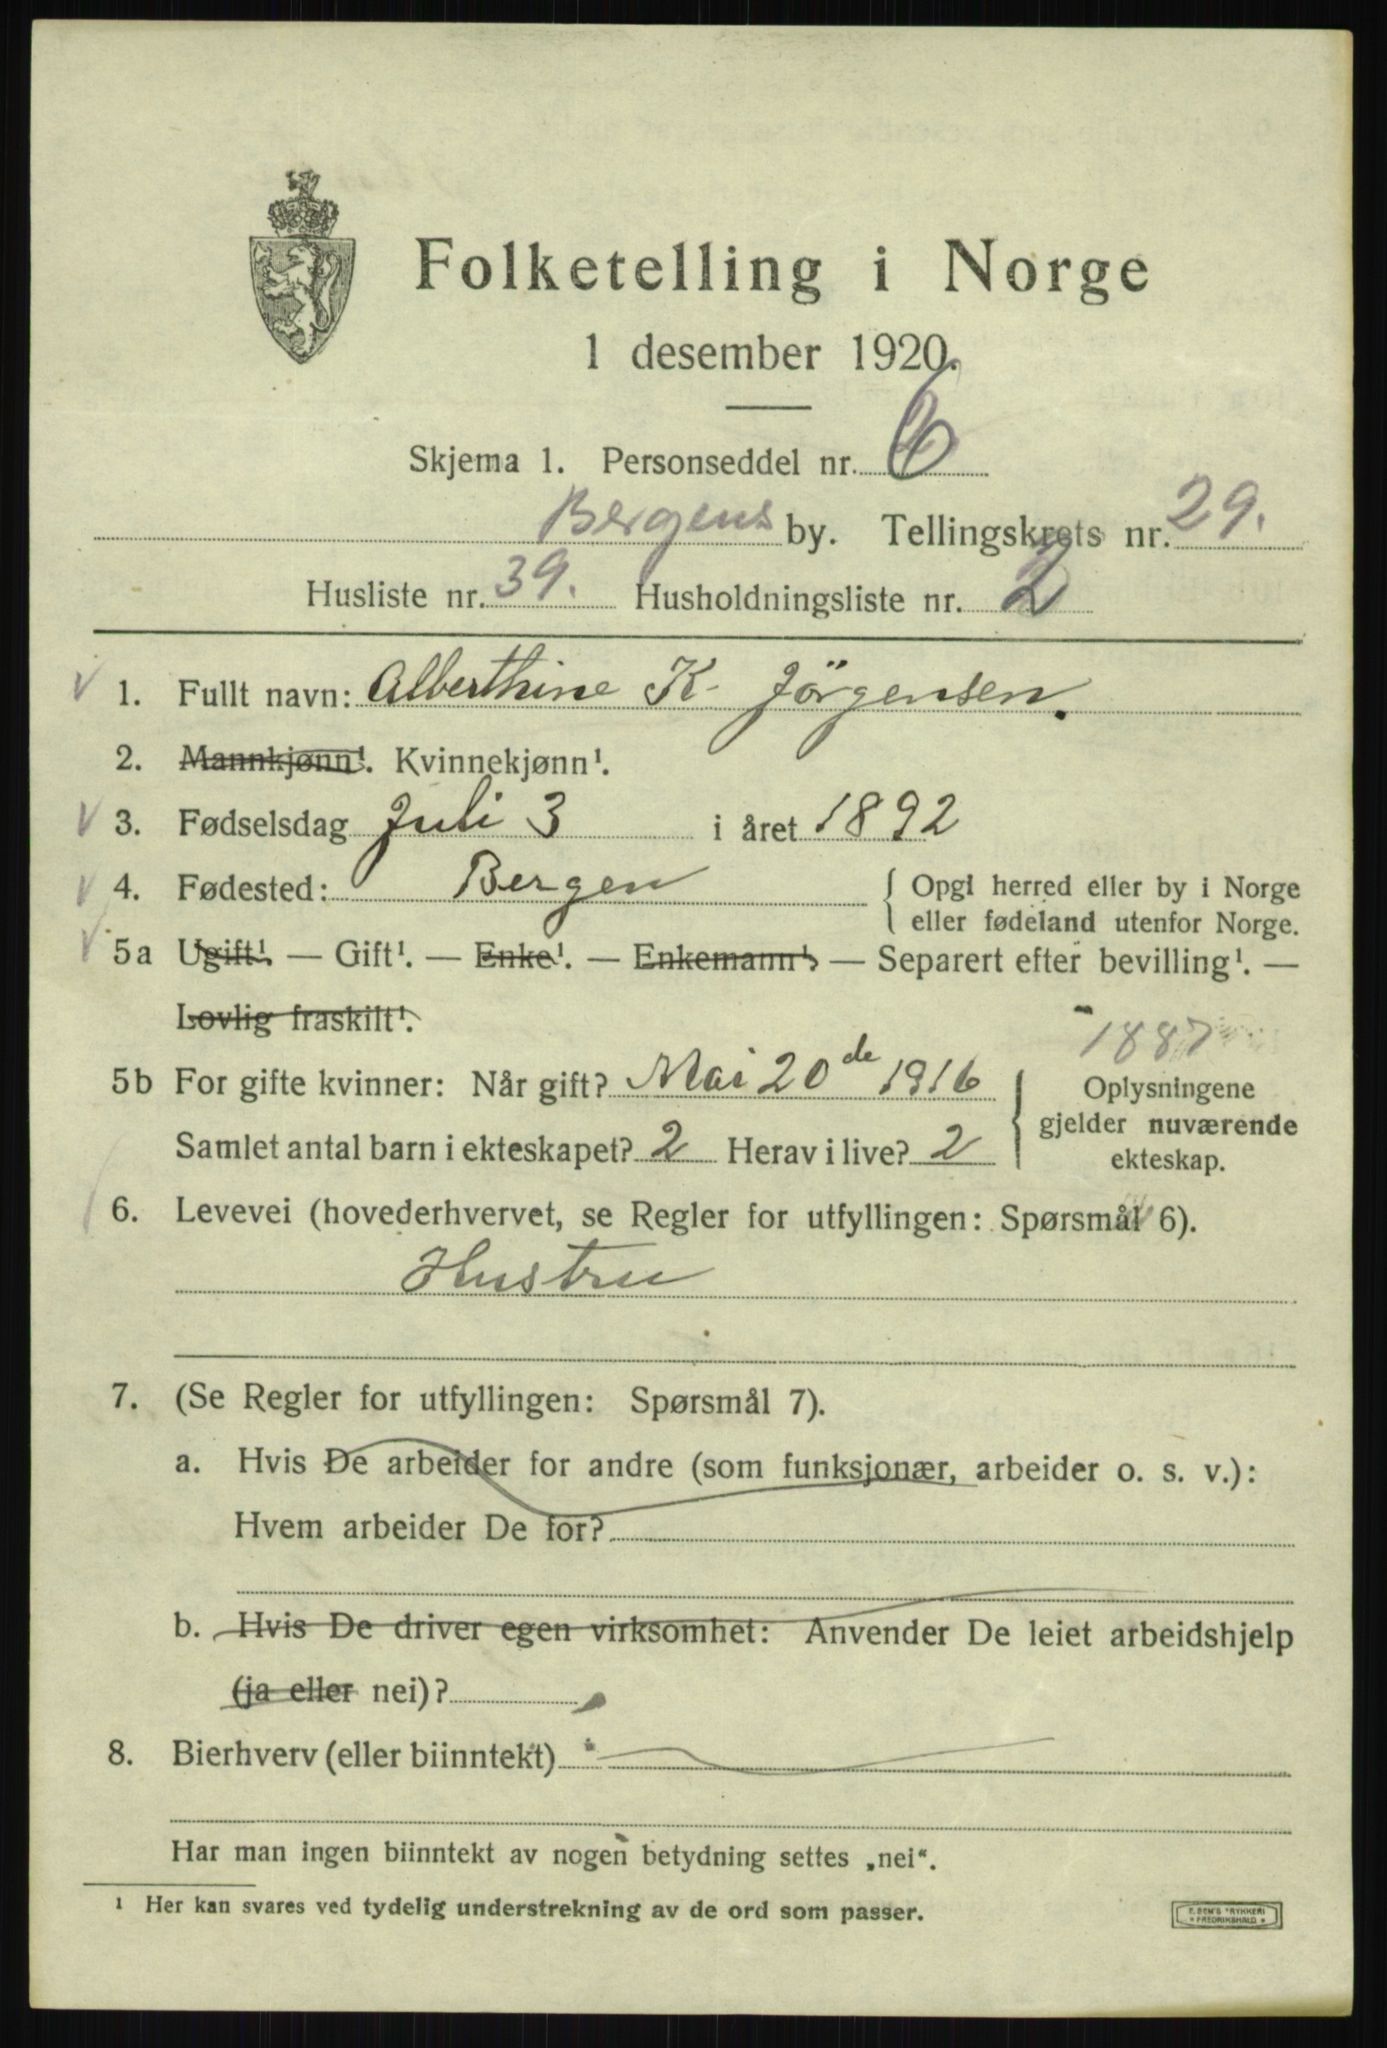 Folketelling i Norge
1 desember 1920.
Skjema 1. Personseddel nr. 6
Bergens by. Tellingskrets nr. 29.
Husliste nr. 39. Husholdningsliste nr. 2
1. Fullt navn: Alberthine K. Jörgensen.
2. Mannkjønn¹. Kvinnekjønn¹.
3. Fødselsdag Juli 3 i året 1892
4. Fødested: Bergen { Opgi herred eller by i Norge
eller fødeland utenfor Norge.
5a Ugift¹. — Gift¹. — Enke¹. — Enkemann¹. — Separert efter bevilling¹. —
Lovlig fraskilt¹.
1887
5b For gifte kvinner: Når gift? Mai 20de 1916 { Oplysningene
gjelder nuværende
Samlet antal barn i ekteskapet? 2 Herav i live? 2 ekteskap.
6. Levevei (hovederhvervet, se Regler for utfyllingen: Spørsmål 6).
Hustru
7. (Se Regler for utfyllingen: Spørsmål 7).
a. Hvis De arbeider for andre (som funksjonær, arbeider o. s. v.):
Hvem arbeider De for?
b. Hvis De driver egen virksomhet: Anvender De leiet arbeidshjelp
(ja eller nei)?
8. Bierhverv (eller biinntekt)
Har man ingen biinntekt av nogen betydning settes „nei“.
¹ Her kan svares ved tydelig understrekning av de ord som passer.